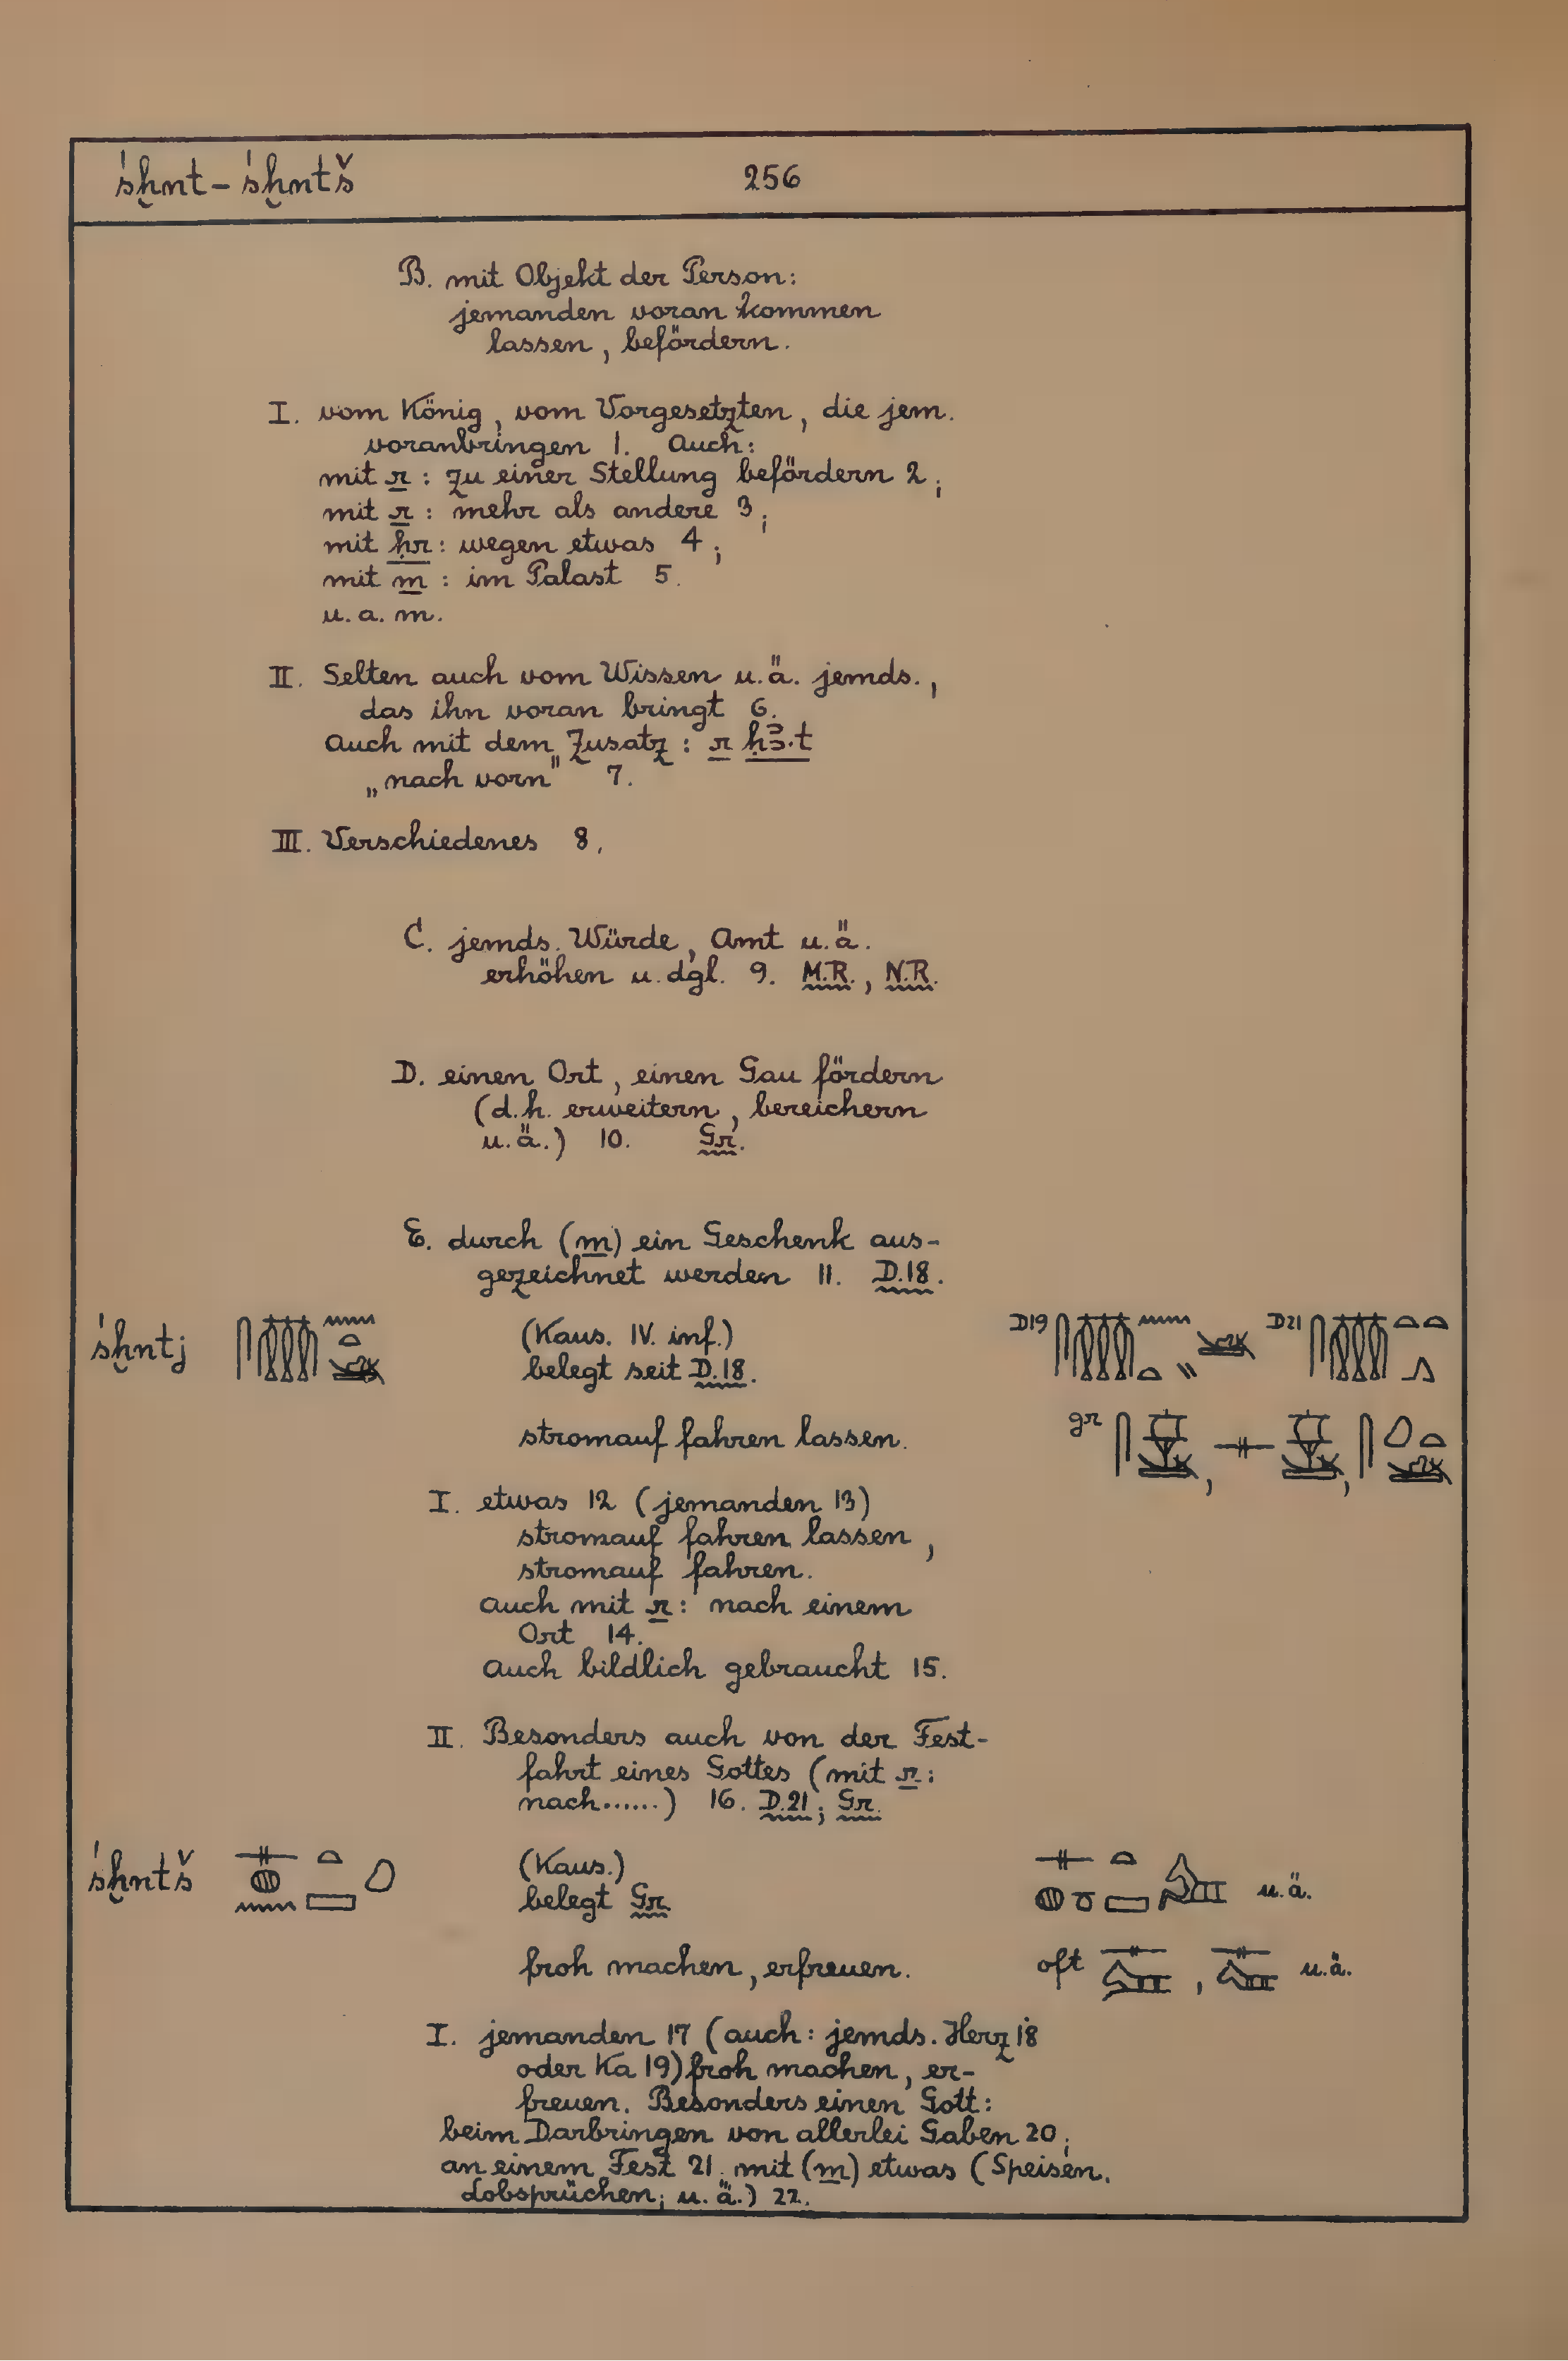 śḫnt – śḫntš 256
B. mit Objekt der Person:
jemanden voran kommen
lassen, befördern.
I. vom König, vom Vorgesetzten, die jem.
voranbringen 1. Auch:
mit r : zu einer Stellung befördern 2;
mit r : mehr als andere 3;
mit ḥr : wegen etwas 4;
mit m : im Palast 5.
u. a. m.
II. Selten auch vom Wissen u.ä. jemds.,
das ihn voran bringt 6.
Auch mit dem Zusatz : r ḥꜣ.t
„nach vorn" 7.
III. Verschiedenes 8.
C. jemds. Würde, Amt u.ä.
erhöhen u. dgl. 9. M.R., N.R.
D. einen Ort, einen Gau fördern
(d.h. erweitern, bereichern
u.ä.) 10. Gr.
E. durch (m) ein Geschenk aus-
gezeichnet werden 11. D.18.
śḫntj (Kaus. IV. inf.) D19 D21
belegt seit D.18.
stromauf fahren lassen. gr
I. etwas 12 (jemanden 13)
stromauf fahren lassen,
stromauf fahren.
Auch mit r : nach einem
Ort 14.
Auch bildlich gebraucht 15.
II. Besonders auch von der Fest-
fahrt eines Gottes (mit r :
nach......) 16. D.21; Gr.
śḫntš (Kaus.) u.ä.
belegt Gr.
froh machen, erfreuen. oft , u.ä.
I. jemanden 17 (auch: jemds. Herz 18
oder Ka 19) froh machen, er-
freuen. Besonders einen Gott:
beim Darbringen von allerlei Gaben 20;
an einem Fest 21. mit (m) etwas (Speisen.
Lobsprüchen; u. ä.) 22.